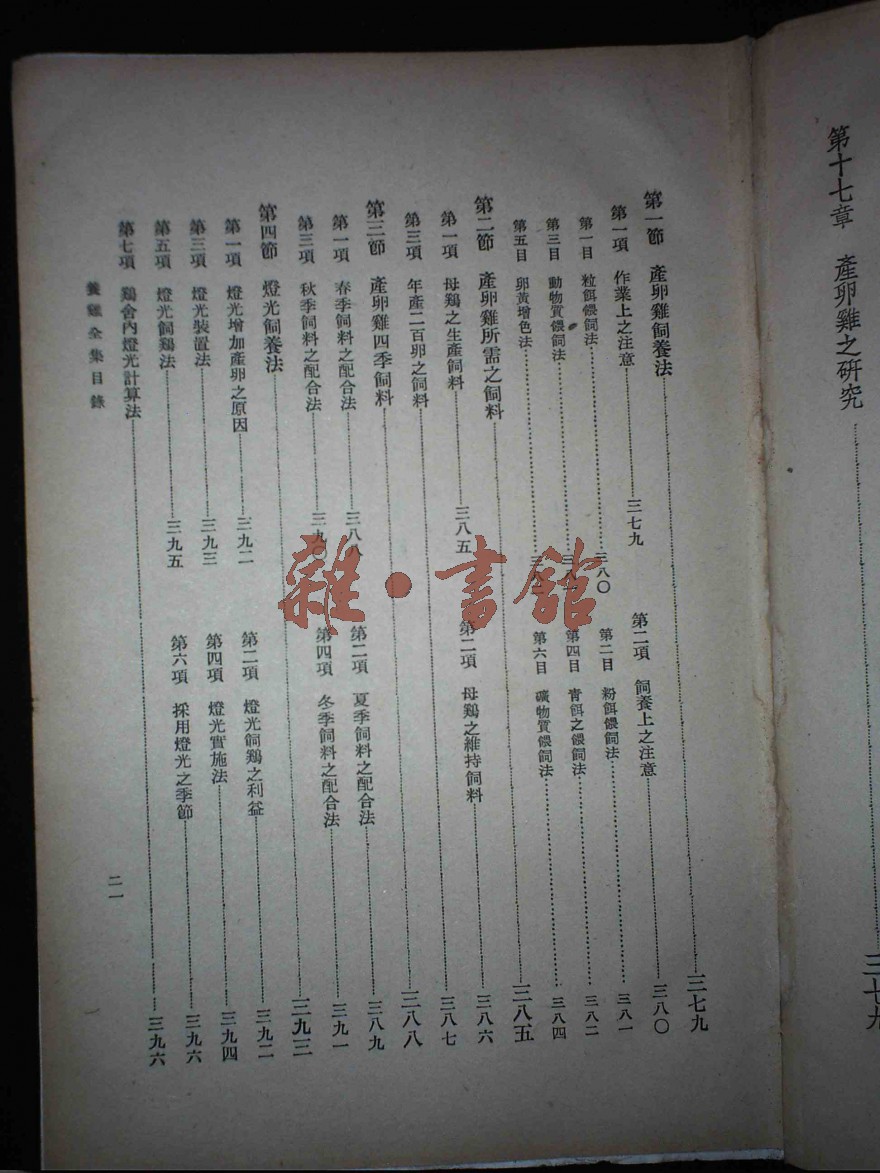 第十七章　產卵雞之研究……三七九
第一節　產卵雞飼養法……三七九
第一項　作業上之注意……三七九　第二項　飼養上之注意……三八〇
第一目　粒餌餵飼法……三八〇　第二目　粉餌餵飼法……三八一
第三目　動物質餵飼法……三八　第四目　青餌之餵飼法……三八二
第五目　卵黃增色法……三八　第六目　礦物質餵飼法……三八四
第二節　產卵雞所需之飼料……三八五
第一項　母鷄之生產飼料……三八五　第二項　母鷄之維持飼料……三八六
第三項　年產二百卵之飼料……三八七
第三節　產卵雞四季飼料……三八八
第一項　春季飼料之配合法……三八八　第二項　夏季飼料之配合法……三八九
第三項　秋季飼料之配合法……三九〇　第四項　冬季飼料之配合法……三九一
第四節　燈光飼養法……三九三
第一項　燈光增加產卵之原因……三九二　第二項　燈光飼鷄之利益……三九二
第三項　燈光裝置法……三九三　第四項　燈光實施法……三九四
第五項　燈光飼鷄法……三九五　第六項　採用燈光之季節……三九六
第七項　鷄舍內燈光計算法……三九六
養雞全集目錄　二一
雜·書館